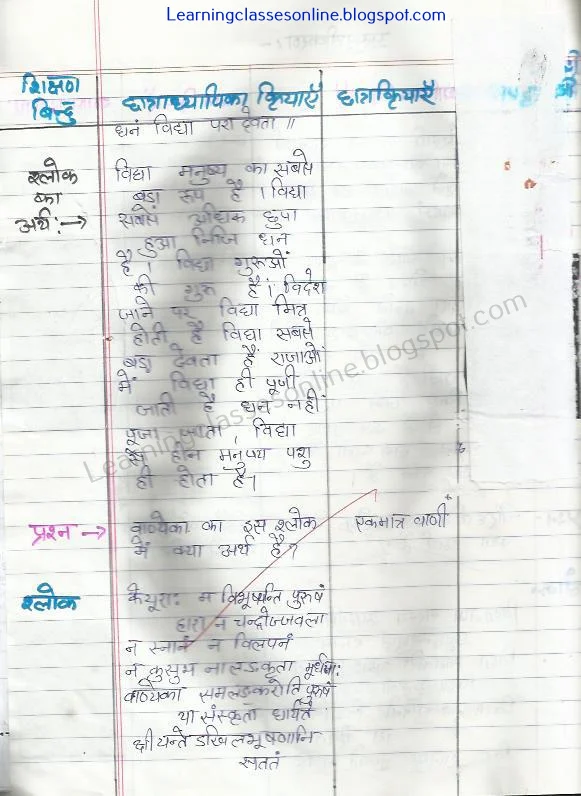 Learningclassesonline.blogspot.com
शिक्षण बिन्दु
छात्राध्यापिका क्रियाएँ
छात्र क्रियाएँ
धनं विद्या परा देवता ॥
श्लोक का अर्थ:→
विद्या मनुष्य का सबसे
बड़ा रूप है । विद्या
सबसे अधिक छुपा
हुआ निजि धन
है । विद्या गुरूओं
की गुरू है। विदेश
जाने पर विद्या मित्र
होती है विद्या सबसे
बड़ा देवता है राजाओं
में विद्या ही पूजी
जाती है धन नहीं
पूजा जाता, विद्या
से हीन मनुष्य पशु
ही होता है।
Learningclassesonline.blogspot.com
प्रश्न →
वाण्येका का इस श्लोक
में क्या अर्थ है?
एकमात्र वाणी
श्लोक
केयूरा: न विभूषयन्ति पुरुषं
हारा न चन्द्रोज्जवला
न स्नानं न विलपनं
न कुसुम नालङकृता मूर्धजा:
वाण्येका समलङकरोति पुरुषं
या संस्कृता धार्यते
क्षीयन्ते डखिलभूषणानि
सततं